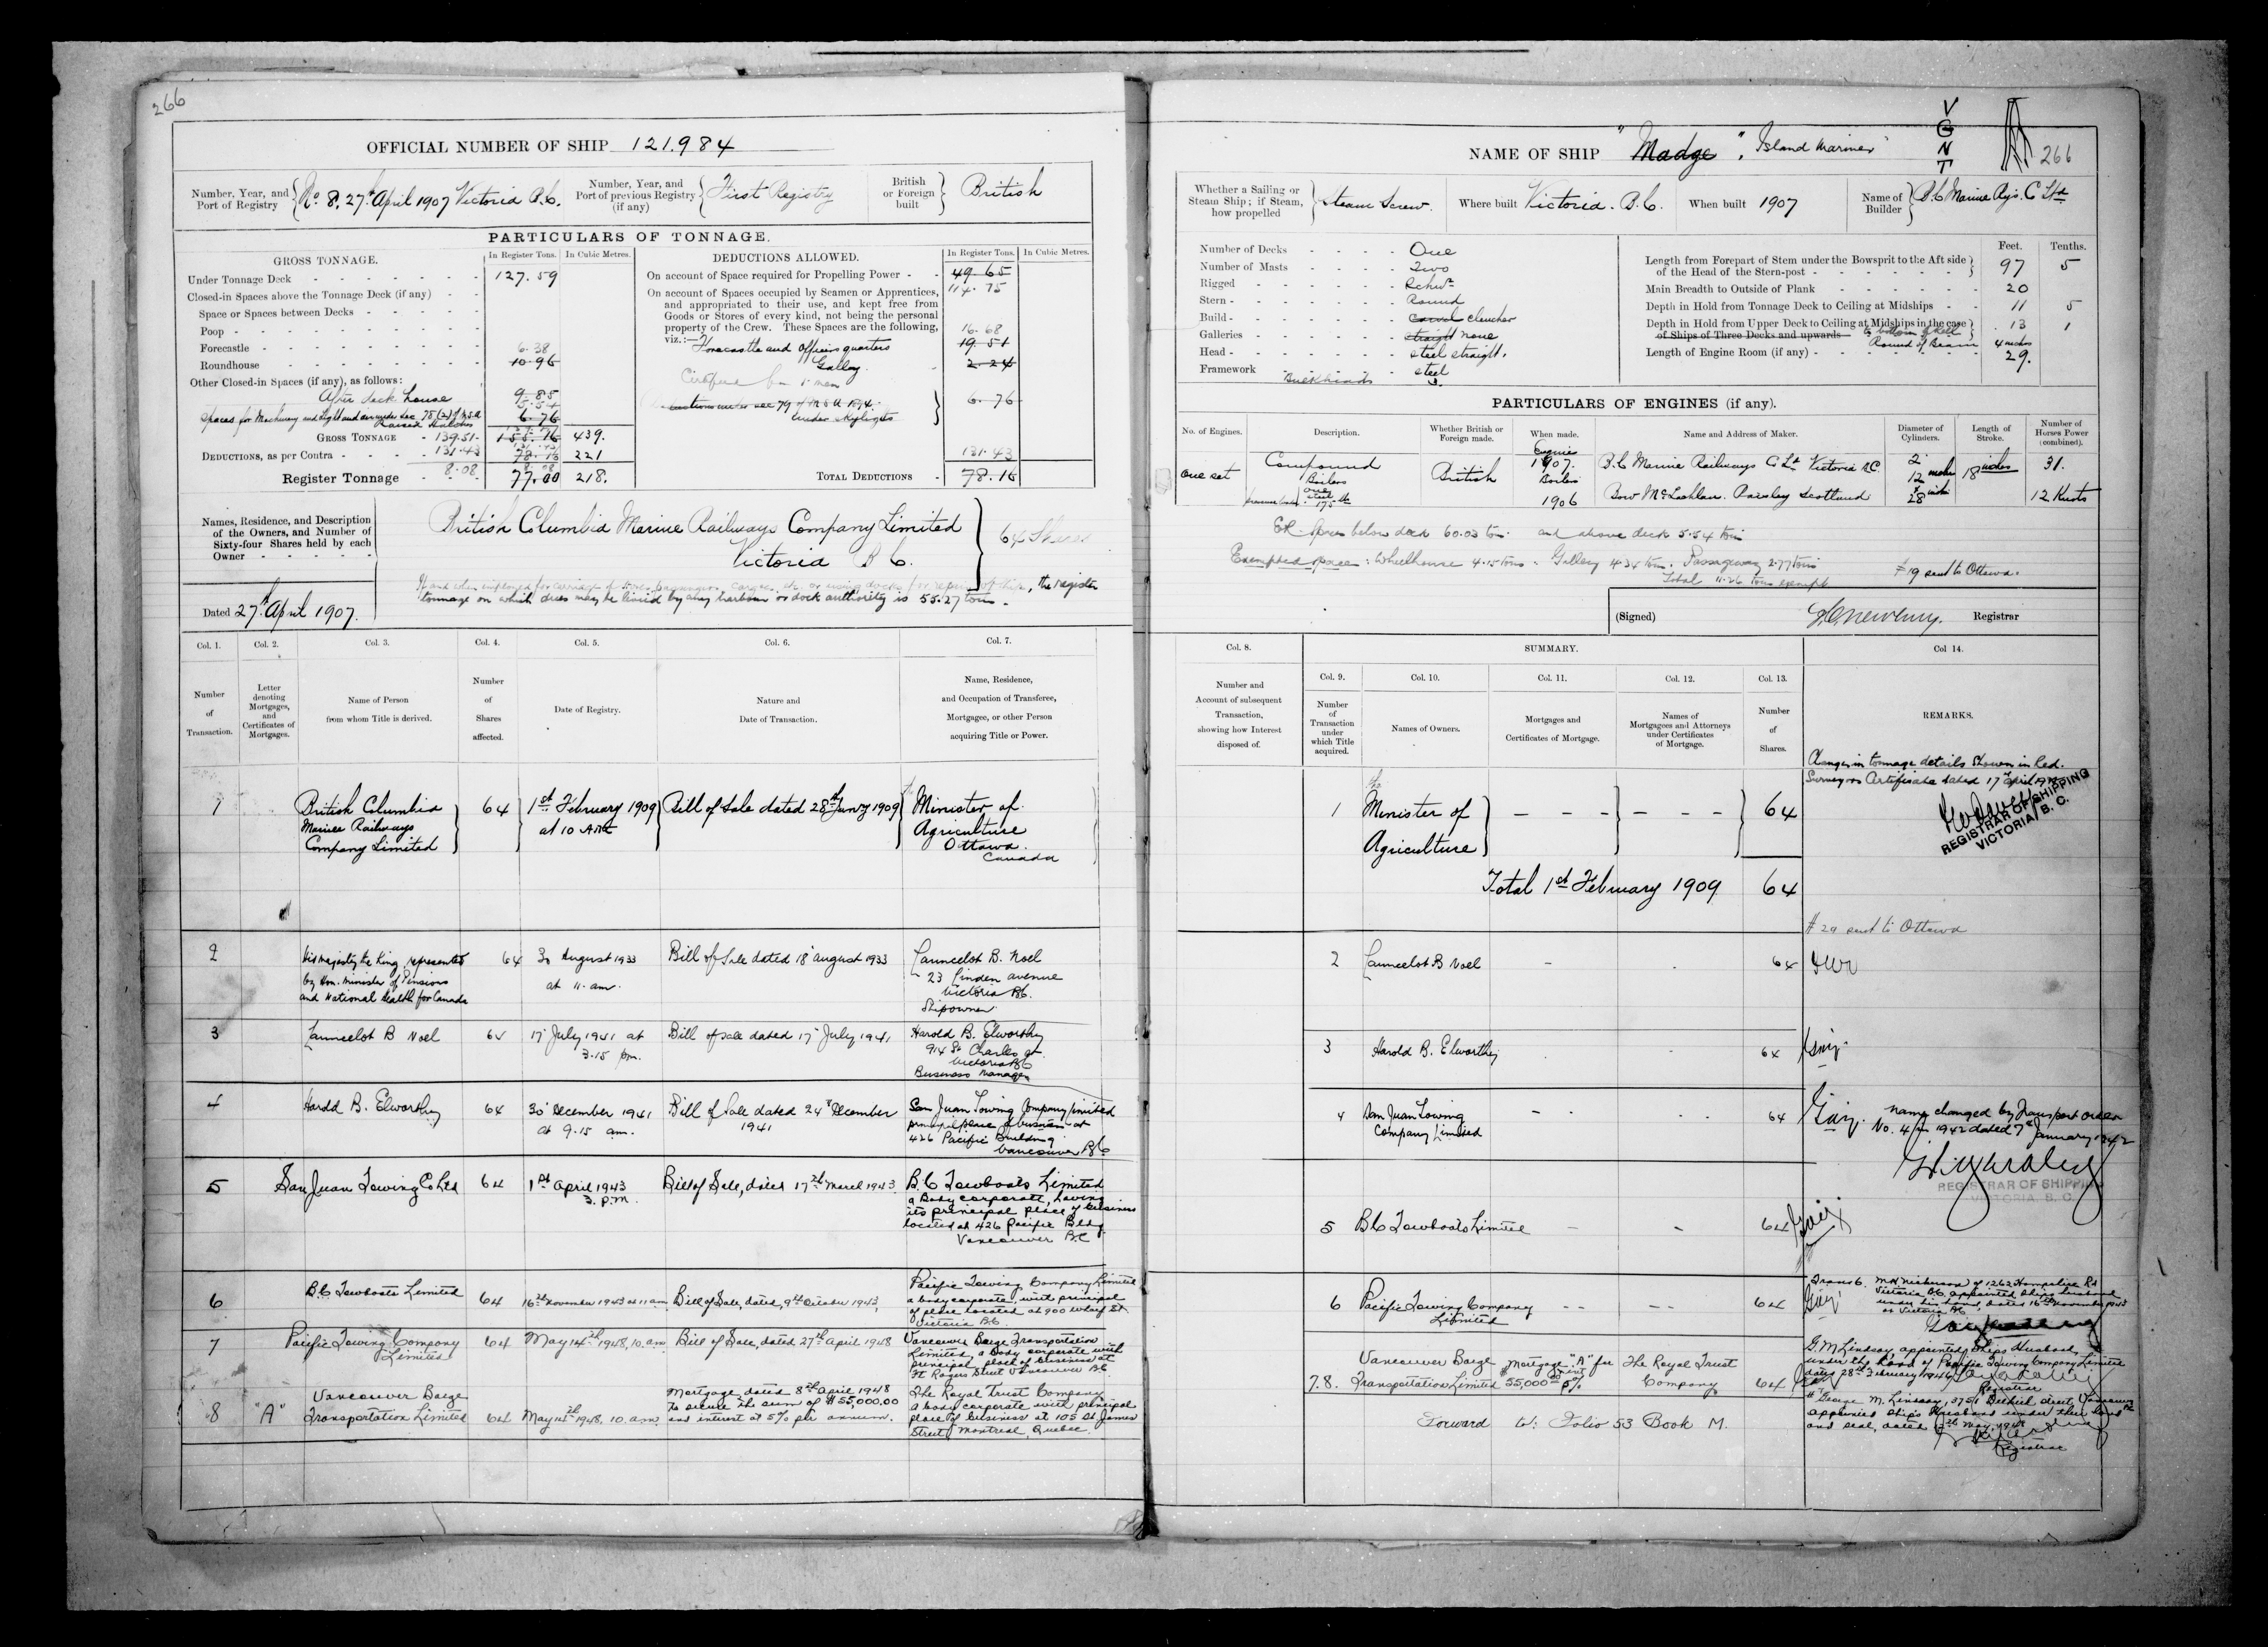 266
OFFICIAL NUMBER OF SHIP 121.984
Number, Year, and Port of Registry No. 8. 27th April 1907 Victoria B.C.
Number, Year, and Port of previous Registry (if any) First Registry
British or Foreign built British
PARTICULARS OF TONNAGE.
GROSS TONNAGE.
In Register Tons.
In Cubic Metres.
Under Tonnage Deck 127.59
Closed-in Spaces above the Tonnage Deck (if any)
Space or Spaces between Decks
Poop
Forecastle 6.38
Roundhouse 10.96
Other Closed-in Spaces (if any), as follows:
After deck house 9.85
5.54
Spaces for Machinery and light and air under Sec. 78 (2) of M.S.A 6.76
Raised Hatches
GROSS TONNAGE 139.51 155.16 439.
DEDUCTIONS, as per Contra 131.43 78.16 221
Register Tonnage 8.08 77.00 218.
DEDUCTIONS ALLOWED.
In Register Tons.
In Cubic Metres.
On account of Space required for Propelling Power 49.65
114.75
On account of Spaces occupied by Seamen or Apprentices,
and appropriated to their use, and kept free from
Goods or Stores of every kind, not being the personal
property of the Crew. These Spaces are the following, 16.68
viz.:— Forecastle and Officers quarters 19.51
Galley 2.24
Certified for men
under sec 79 of M.S.A 1894. 6.76
under skylights
131.43
TOTAL DEDUCTIONS 78.16
Names, Residence, and Description
of the Owners, and Number of
Sixty-four Shares held by each
Owner
British Columbia Marine Railways Company Limited
Victoria B C.
64 Shares
the register
tonnage on which dues may be levied by any harbour or dock authority is 55.27 tons.
Dated 27th April 1907.
Col. 1. Col. 2. Col. 3. Col. 4. Col. 5. Col. 6. Col. 7.
Number of Transaction.
Letter denoting Mortgages, and Certificates of Mortgages.
Name of Person from whom Title is derived.
Number of Shares affected.
Date of Registry.
Nature and Date of Transaction.
Name, Residence, and Occupation of Transferee, Mortgagee, or other Person acquiring Title or Power.
1 British Columbia Marine Railways Company Limited 64 1st February 1909 at 10 A.M. Bill of Sale dated 28th Janry 1909 the Minister of Agriculture Ottawa. Canada
2 His Majesty the King, represented by Hon. Minister of Pensions and National Health for Canada 64 30 August 1933 at 11 am. Bill of Sale dated 18 August 1933 Launcelot B. Noel 23 Linden avenue Victoria BC. Shipowner.
3 Launcelot B Noel 64 17 July 1941 at 3.15 pm. Bill of Sale dated 17 July 1941 Harold B. Elworthy 914 St Charles St. Victoria BC Business Manager
4 Harold B. Elworthy 64 30 December 1941 at 9.15 am. Bill of Sale dated 24 December 1941 San Juan Towing Company Limited principal place of business at 426 Pacific Building Vancouver BC
5 San Juan Towing Co Ltd 64 1st April 1943 3. p.m. Bill of Sale, dated 17th March 1943 B.C Towboats Limited a body corporate, having its principal place of business located at 426 Pacific Bldg. Vancouver B.C
6 B.C Towboats Limited 64 16th November 1943 at 11 am Bill of Sale, dated, 9th October 1943, Pacific Towing Company Limited a body corporate, with principal of place located at 900 Wharf St. Victoria B.C.
7 Pacific Towing Company Limited 64 May 14th 1948, 10. am Bill of Sale, dated 27th April 1948 Vancouver Barge Transportation Limited, a body corporate with principal place of business at Ft Rogers Street Vancouver B.C.
8 "A" Vancouver Barge Transportation Limited 64 May 14th 1948, 10. am Mortgage, dated 8th April 1948 to secure the sum of $55,000.00 and interest at 5% per annum. The Royal Trust Company a body corporate with principal place of business at 105 St James Street, Montreal, Quebec.
V
G
N
T
266
NAME OF SHIP "Madge". "Island Mariner"
Whether a Sailing or Steam Ship; if Steam, how propelled Steam Screw.
Where built Victoria. B.C.
When built 1907
Name of Builder B.C Marine Rys. C Ltd
Number of Decks One
Number of Masts Two
Rigged Schr
Stern Round
Build Carvel clencher
Galleries straight none
Head steel straight.
Framework steel
Bulkheads 3
Feet. Tenths.
Length from Forepart of Stem under the Bowsprit to the Aft side of the Head of the Stern-post 97 5
Main Breadth to Outside of Plank 20
Depth in Hold from Tonnage Deck to Ceiling at Midships 11 5
Depth in Hold from Upper Deck to Ceiling at Midships in the case of Ships of Three Decks and upwards 13 1
Round of Beam 4 inches
Length of Engine Room (if any) 29.
PARTICULARS OF ENGINES (if any).
No. of Engines.
Description.
Whether British or Foreign made.
When made.
Name and Address of Maker.
Diameter of Cylinders.
Length of Stroke.
Number of Horses Power (combined).
One set Compound British Engines 1907. B.C Marine Railways C Ltd Victoria B.C. 2 12 inches 18 inches 31.
Boilers one steel 175 lb Boilers 1906 Bow McLachlan. Paisley Scotland 28 inches 12 Knots
ER. Spaces below deck 60.03 tons and above deck 5.54 tons
Exempted spaces: Wheelhouse 4.15 tons. Galley 4.34 tons. Passageway 2.77 tons
Total 11.26 tons exempt
#19 sent to Ottawa.
(Signed) Registrar
Col. 8. SUMMARY. Col 14.
Number and Account of subsequent Transaction, showing how Interest disposed of.
Col. 9. Col. 10. Col. 11. Col. 12. Col. 13.
Number of Transaction under which Title acquired.
Names of Owners.
Mortgages and Certificates of Mortgage.
Names of Mortgagees and Attorneys under Certificates of Mortgage.
Number of Shares.
REMARKS.
Changes in tonnage details shown in Red.
Surveyors Certificate dated 17 April
REGISTRAR OF SHIPPING
VICTORIA, B. C.
1 the Minister of Agriculture – – – – – – 64
Total 1st February 1909 64
#29 sent to Ottawa
2 Launcelot B Noel 64
3 Harold B. Elworthy 64
4 San Juan Towing Company Limited 64
name changed by Transport order
No. 4 in 1942 dated 7th January 1942
REGISTRAR OF SHIPPING
VICTORIA, B. C.
5 B.C Towboats Limited 64
6 Pacific Towing Company Limited 64
Victoria B.C. appointed Ships Husband
under his hand, dated 16th November 1943
at Victoria B.C.
7.8. Vancouver Barge Transportation Limited Mortgage "A" for 55,000.00 5% The Royal Trust Company 64
G. M Lindsay, appointed Ships Husband,
under the hand of Pacific Towing Company Limited
dated 28th February
Registrar
George M. Lindsay, Street, Vancouver
appointed Ship's Husband under their hand
and seal, dated May, 1948
Registrar
Forward to: Folio 53 Book M.